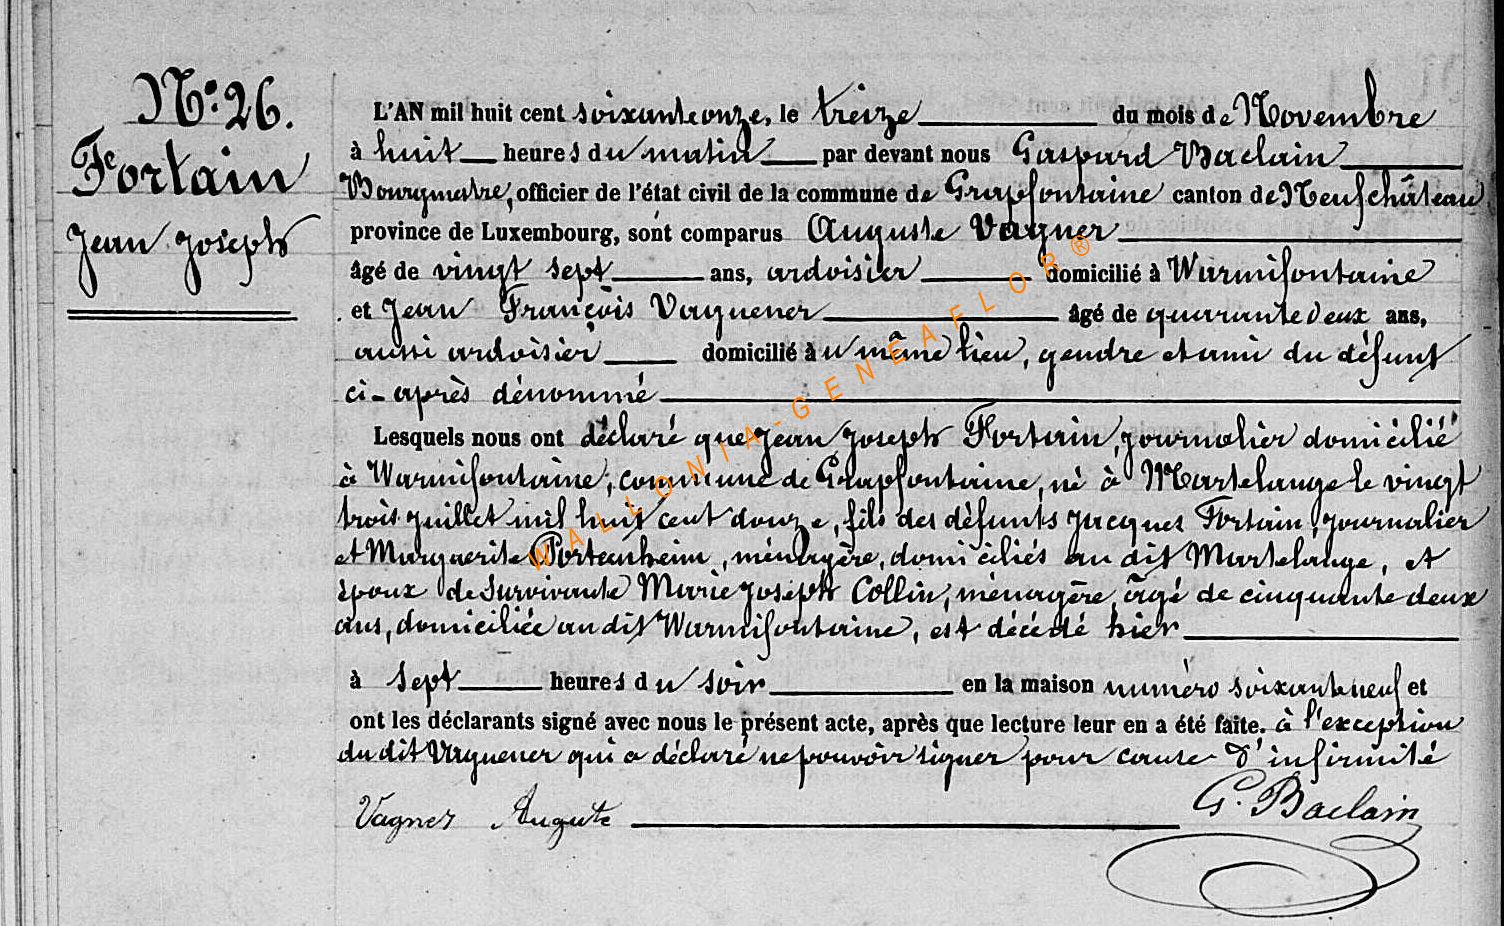 No. 26.
Fortain
Jean Joseph
L'AN mil huit cent soixante onze, le treize du mois de Novembre
à huit heures du matin par devant nous Gaspard Baclain
Bourgmestre, officier de l'état civil de la commune de Grapfontaine canton de Neufchâteau
province de Luxembourg, sont comparus Auguste Vagner
âgé de vingt sept ans, ardoisier domicilié à Warmifontaine
et Jean François Vaguener âgé de quarante deux ans,
aussi ardoisier domicilié au même lieu, gendre et ami du défunt
ci-après dénommé
Lesquels nous ont déclaré que Jean Joseph Fortain, journalier domicilié
à Warmifontaine, commune de Grapfontaine, né à Martelange le vingt
trois juillet mil huit cent douze, fils des défunts Jacques Fortain, journalier
et Marguerite Portenheim, ménagère, domiciliés au dit Martelange, et
époux de survivante Marie Joseph Collin, ménagère, âgé de cinquante deux
ans, domiciliée au dit Warmifontaine, est décédé hier
à sept heures du soir en la maison numéro soixante neuf et
ont les déclarants signé avec nous le présent acte, après que lecture leur en a été faite. à l'exception
du dit Vaguener qui a déclaré ne pouvoir signer pour cause d'infirmité
Vagner Auguste G. Baclain
WALLONIA-GENEAFLOR®